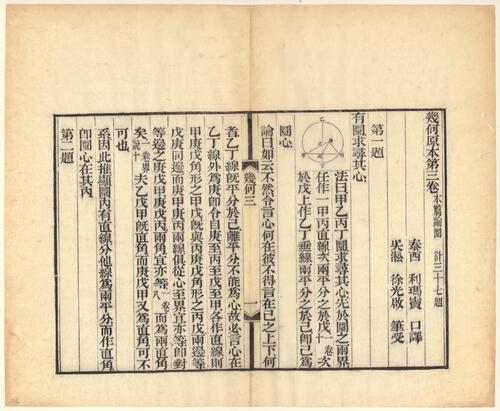 幾何原本第三卷 本篇論圜 計三十七題
泰西 利瑪竇 口譯
吳淞 徐光啟 筆受
第一題
有圜求尋其心
法曰甲乙丙丁圜求尋其心先於圜之兩界
任作一甲丙直線次兩平分之於戊一卷十次
於戊上作乙丁垂線兩平分之於己即己為
圜心
論曰如云不然令言心何在彼不得言在己之上下何
幾何三 一
者乙丁線既平分於己離平分不能為心故必言心在
乙丁線外為庚即令自庚至丙至戊至甲各作直線則
甲庚戊角形之甲戊既與丙庚戊角形之丙戊兩邊等
戊庚同邊而庚甲庚丙兩線俱從心至界宜亦等即對
等邊之庚戊甲庚戊丙兩角宜亦等一卷八而為兩直角
矣一卷界說十夫乙戊甲既直角而庚戊甲又為直角可不
可也
系因此推顯圜內有直線分他線為兩平分而作直角
即圜心在其內
第二題